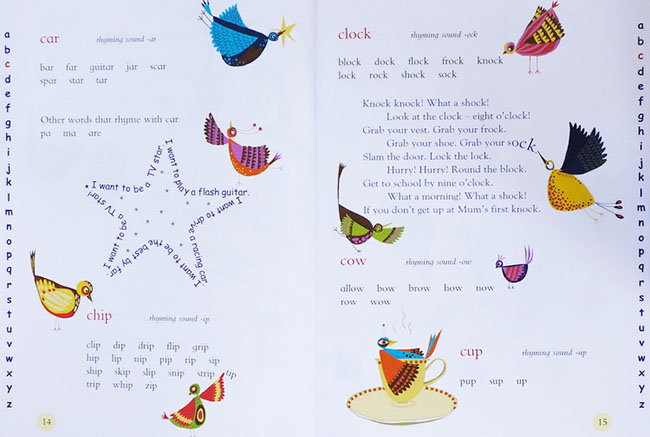 a
b
c
d
e
f
g
h
i
j
k
l
m
n
o
p
q
r
s
t
u
v
w
x
y
z
car rhyming sound -ar
bar far guitar jar scar
spar star tar
Other words that rhyme with car
pa ma are
I want to be a TV star.
I want to play a flash guitar.
I want to drive a racing car.
I want to be the best by far.
I want to be a TV star!
chip rhyming sound -ip
clip dip drip flip grip
hip lip nip pip rip sip
ship skip slip snip strip tip
trip whip zip
14
clock rhyming sound -ock
block dock flock frock knock
lock rock shock sock
Knock knock! What a shock!
Look at the clock – eight o'clock!
Grab your vest. Grab your frock.
Grab your shoe. Grab your sock.
Slam the door. Lock the lock.
Hurry! Hurry! Round the block.
Get to school by nine o'clock.
What a morning! What a shock!
If you don't get up at Mum's first knock.
cow rhyming sound -ow
allow bow brow how now
row wow
cup rhyming sound -up
pup sup up
15
a
b
c
d
e
f
g
h
i
j
k
l
m
n
o
p
q
r
s
t
u
v
w
x
y
z